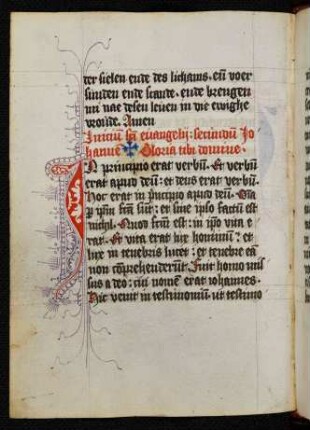 der sielen ende des lichams. eñ voer
sunden ende scande. ende brengen
mi nae desen leuen in die ewighe
vroude. Amen
Iniciũ sci euangelij: secundũ Jo
hannē Gloria tibi domine.
IN principio erat verbũ. Et verbũ
erat apud deũ: et deus erat verbũ.
Hoc erat in p̃ncipio apud deũ. Oĩa
p ip̃m fc̃a sũt: et sine ipso factũ est
nichil. Quod fc̃m est: in ip̃o vita e
rat. Et vita erat lux hominũ: et
lux in tenebris lucet: et tenebre eã
non cõprehenderũt. Fuit homo mis
sus a deo: cui nomē erat iohannes.
Hic venit in testimoniũ: ut testimo